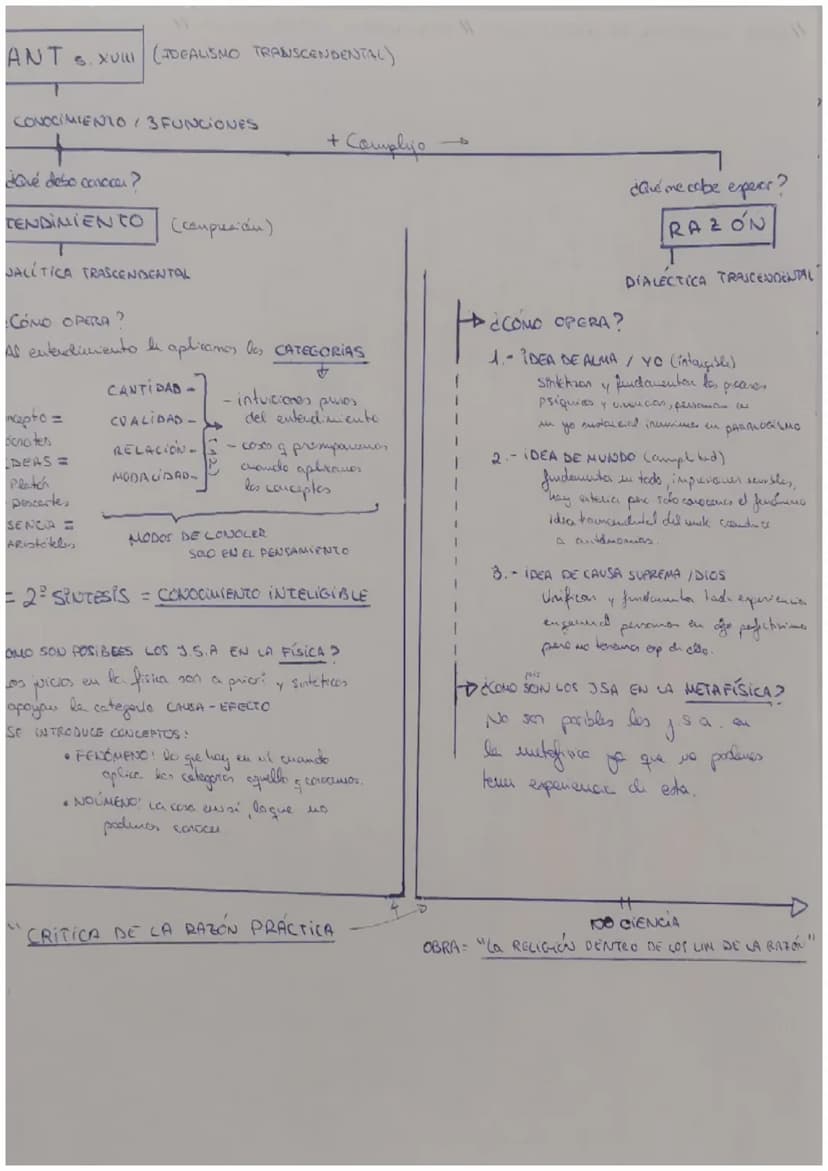 ANT s. XVIII (IDEALISMO TRANSCENDENTAL)
CONOCIMIENTO / 3 FUNCIONES
+ Complejo →
¿Qué debo conocer?
TENDIMIENTO (comprensión)
NALÍTICA TRASCENDENTAL
CÓMO OPERA?
Al entendimiento le aplicamos las CATEGORÍAS
CANTIDAD -
CUALIDAD -
RELACIÓN -
MODALIDAD -
(12)
- intuiciones puras
del entendimiento
- cosas q presuponemos
cuando aplicamos
los conceptos
ncepto =
Sócrates
IDEAS =
Platón
Descartes
SENCIA =
Aristóteles
MODOS DE CONOCER
SOLO EN EL PENSAMIENTO
= 2ª SÍNTESIS = CONOCIMIENTO INTELIGIBLE
OMO SON POSIBLES LOS J.S.A EN LA FÍSICA?
Los juicios en la física son a priori y sintéticos
apoyan la categoría CAUSA - EFECTO
SE INTRODUCE CONCEPTOS:
• FENÓMENO: lo que hay en mí cuando
aplica las categorías aquello q conocemos.
• NOÚMENO: la cosa en sí, lo que no
podemos conocer
" CRÍTICA DE LA RAZÓN PRÁCTICA
¿Qué me cabe esperar?
RAZÓN
DIALÉCTICA TRASCENDENTAL
¿CÓMO OPERA?
1.- IDEA DE ALMA / YO (intangible)
sintetizan y fundamentan los procesos
psíquicos y vivencias, pensamos en
un yo sustancial incurrimos en PARALOGISMO
2.- IDEA DE MUNDO (amplitud)
fundamenta en todo, impresiones sensibles,
hay externa pero solo conocemos el fenómeno
idea transcendental del mundo conduce
a antinomias.
3.- IDEA DE CAUSA SUPREMA / DIOS
Unifican y fundamentan toda experiencia
en general pensamos en algo perfectísimo
pero no tenemos exp de ello.
¿CÓMO SON LOS JSA EN LA METAFÍSICA?
No son posibles los j.s.a. en
la metafísica ya que no podemos
tener experiencia de esta.
NO CIENCIA
OBRA = "La RELIGIÓN DENTRO DE LOS LIM DE LA RAZÓN"